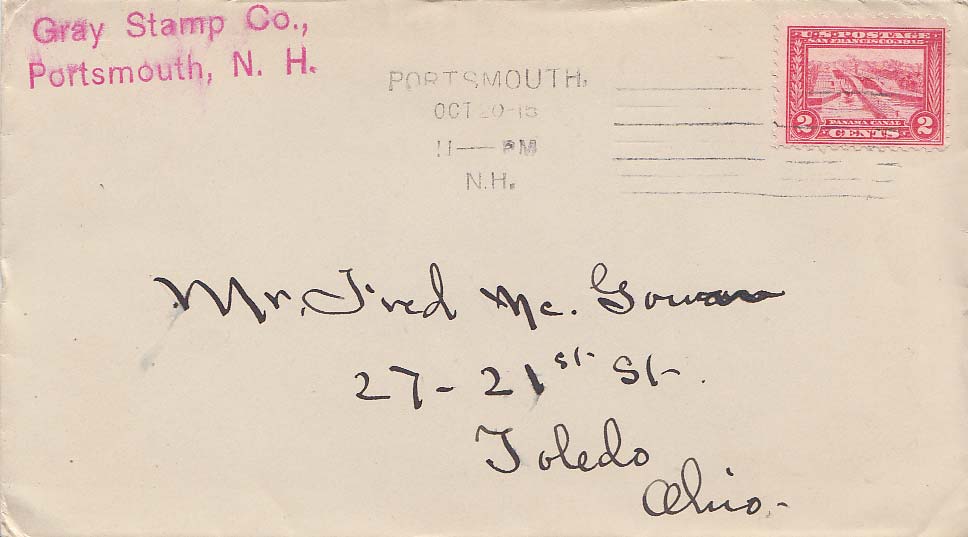 Gray Stamp Co.,
Portsmouth, N. H.
PORTSMOUTH,
OCT 20-15
11— PM
N.H.
U.S. POSTAGE
SAN FRANCISCO 1915
PANAMA CANAL
2 CENTS 2
Mr. Fred Mc. Gowan
27- 21st St.
Toledo
Ohio.-